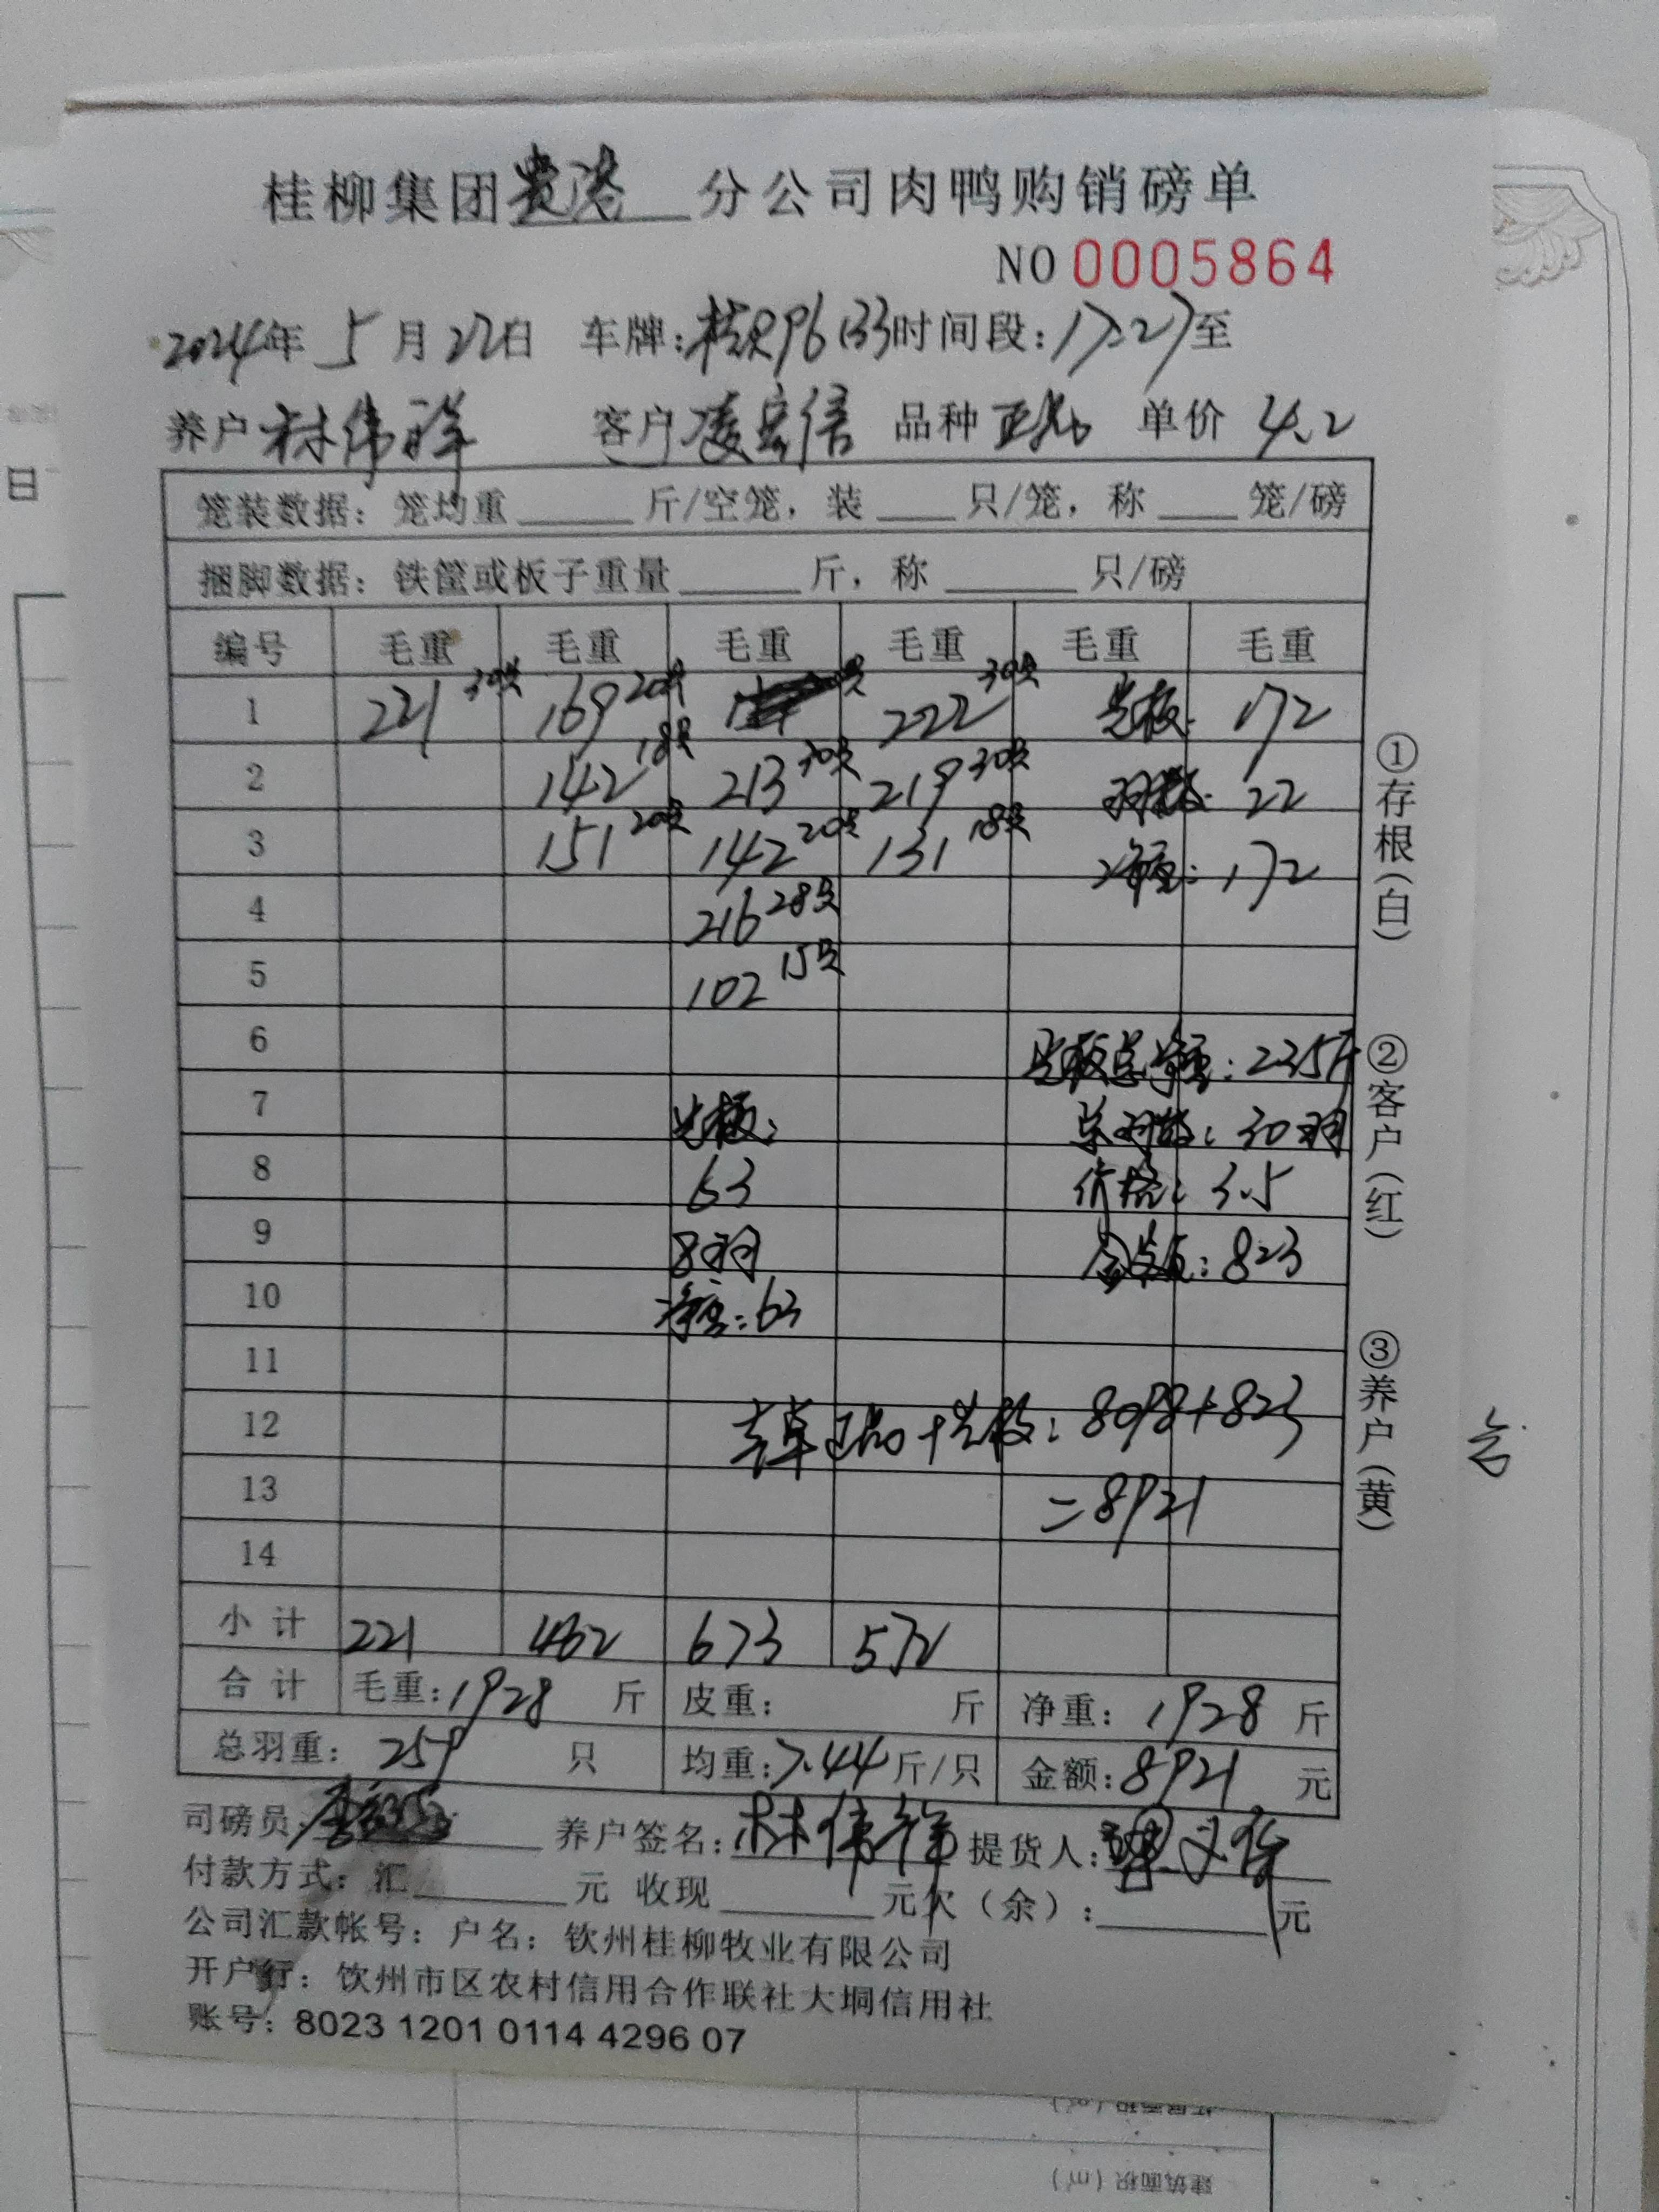 桂柳集团贵港分公司肉鸭购销磅单
NO 0005864
2024年 5 月 22日 车牌: 时间段:17:27至
养户 林伟祥 客户 凌宏信 品种 正品 单价 4.2
笼装数据：笼均重 斤/空笼，装 只/笼，称 笼/磅
捆脚数据：铁筐或板子重量 斤，称 只/磅
编号 毛重 毛重 毛重 毛重 毛重 毛重
1 221 30只 169 20只 222 30只 光板: 172
2 142 18只 213 30只 219 30只 羽数: 22
3 151 20只 142 20只 131 18只 净重: 172
4 216 28只
5 102 15只
6 光板总净重: 235斤
7 光板: 总羽数: 30羽
8 63 价格: 3.5
9 8羽 金额: 823
10 净重: 63
11
12 正品+光板: 8098+823
13 =8921
14
小计 221 462 673 572
合计 毛重:1928 斤 皮重: 斤 净重: 1928 斤
总羽重: 259 只 均重:7.44斤/只 金额:8921 元
司磅员: 养户签名: 林伟祥 提货人:
付款方式: 汇 元 收现 元欠（余）: 元
公司汇款帐号: 户名: 钦州桂柳牧业有限公司
开户行: 钦州市区农村信用合作联社大垌信用社
账号: 8023 1201 0114 4296 07
①存根（白）
②客户（红）
③养户（黄）
日
建筑面积（㎡）